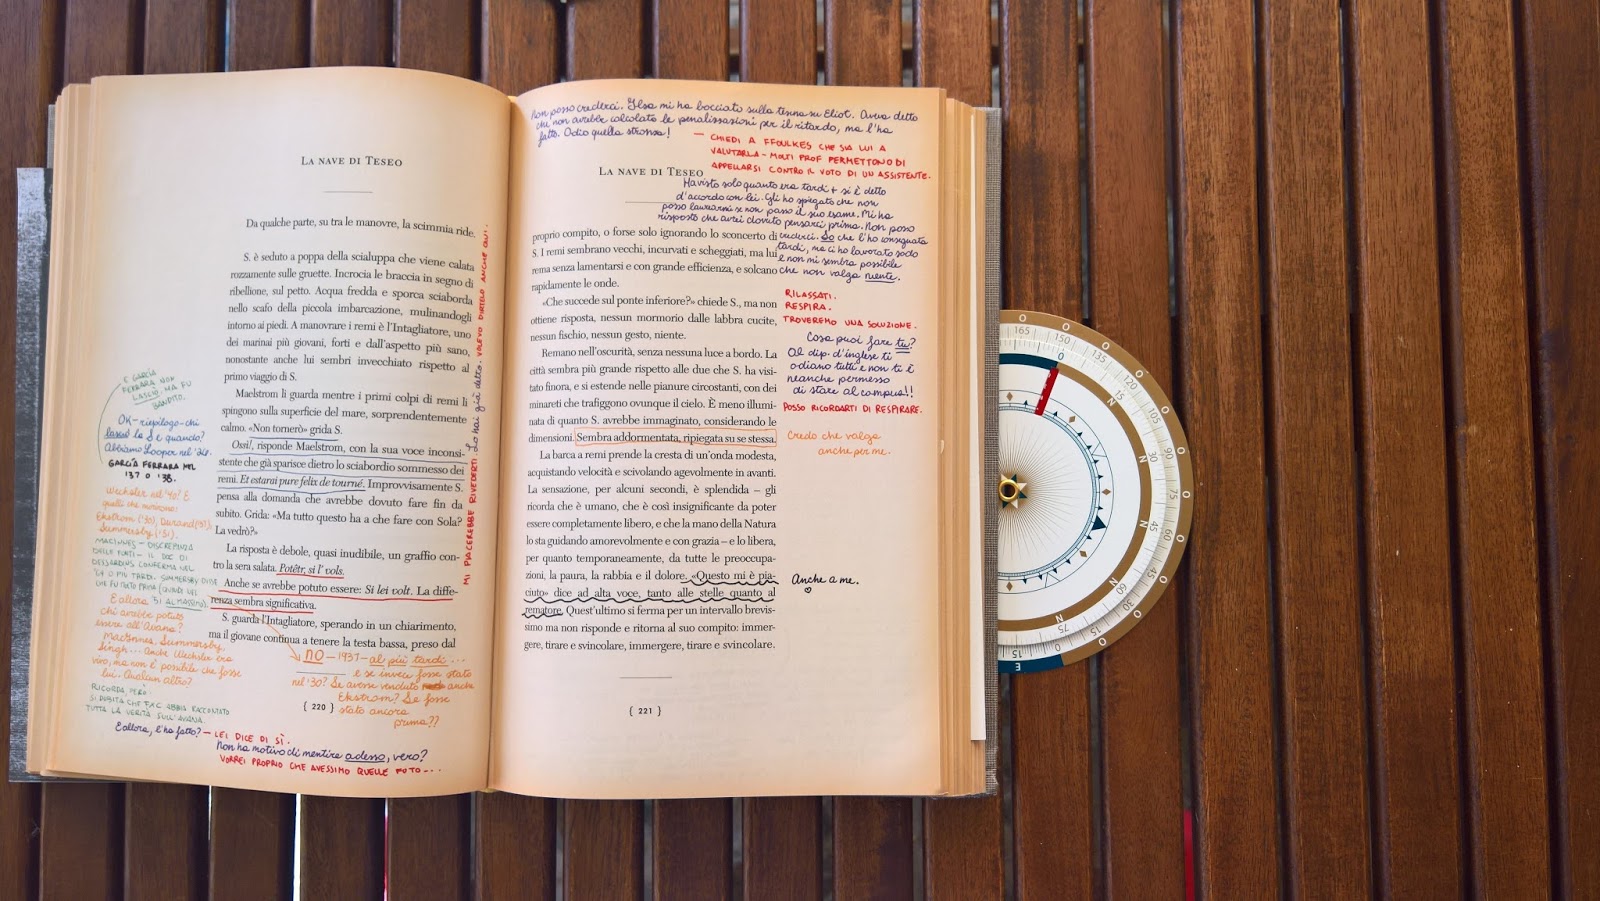 LA NAVE DI TESEO
Da qualche parte, su tra le manovre, la scimmia ride.
S. è seduto a poppa della scialuppa che viene calata
rozzamente sulle gruette. Incrocia le braccia in segno di
ribellione, sul petto. Acqua fredda e sporca sciaborda
nello scafo della piccola imbarcazione, mulinandogli
intorno ai piedi. A manovrare i remi è l'Intagliatore, uno
dei marinai più giovani, forti e dall'aspetto più sano,
nonostante anche lui sembri invecchiato rispetto al
primo viaggio di S.
Maelstrom li guarda mentre i primi colpi di remi li
spingono sulla superficie del mare, sorprendentemente
calmo. «Non tornerò» grida S.
Ossì!, risponde Maelstrom, con la sua voce inconsi-
stente che già sparisce dietro lo sciabordio sommesso dei
remi. Et estarai pure felix de tourné. Improvvisamente S.
pensa alla domanda che avrebbe dovuto fare fin da
subito. Grida: «Ma tutto questo ha a che fare con Sola?
La vedrò?»
La risposta è debole, quasi inudibile, un graffio con-
tro la sera salata. Potêtr, si l' vols.
Anche se avrebbe potuto essere: Si lei volt. La diffe-
renza sembra significativa.
S. guarda l'Intagliatore, sperando in un chiarimento,
ma il giovane continua a tenere la testa bassa, preso dal
{ 220 }
E GARCÍA
FERRARA NON
LASCIÒ. MA FU
BANDITO.
OK - riepilogo - chi
lasciò la S e quando?
Abbiamo Looper nel '26.
GARCÍA FERRARA NEL
'37 O '38.
Wechsler nel '40! E
quelli che morirono:
Ekstrom ('30), Durand ('37),
Summersby ('51).
MACINNES - DISCREPANZA
DELLE FONTI - IL DOC DI
DESSARDINS CONFERMA NEL
MI PIACEREBBE RIVEDERTI. Lo hai già detto. VOLEVO DIRTELO ANCHE QUI.
E allora '51 AL MASSIMO.
chi avrebbe potuto
essere all'Avana?
MacInnes, Summersby,
Singh... Anche Wechsler era
vivo, ma non è possibile che fosse
lui. Qualcun altro?
RICORDA, PERÒ:
SI DUBITA CHE FXC ABBIA RACCONTATO
TUTTA LA VERITÀ SULL'AVANA.
E allora, l'ha fatto? — LEI DICE DI SÌ.
Non ha motivo di mentire adesso, vero?
VORREI PROPRIO CHE AVESSIMO QUELLE FOTO...
NO - 1937 - al più tardi...
e se invece fosse stato
nel '30? Se avesse venduto anche
Ekstrom? Se fosse
stato ancora
prima??
Non posso crederci. Ilsa mi ha bocciato sulla tesina su Eliot. Aveva detto
che non avrebbe calcolato le penalizzazioni per il ritardo, ma l'ha
fatto. Odio quella stronza!
— CHIEDI A FFOULKES CHE SIA LUI A
VALUTARLA - MOLTI PROF PERMETTONO DI
APPELLARSI CONTRO IL VOTO DI UN ASSISTENTE.
LA NAVE DI TESEO
Ha visto solo quanto era tardi + si è detto
d'accordo con lei. Gli ho spiegato che non
posso laurearmi se non passo il suo esame. Mi ha
risposto che avrei dovuto pensarci prima. Non posso
crederci. So che l'ho consegnata
tardi, ma ci ho lavorato sodo
e non mi sembra possibile
che non valga niente.
proprio compito, o forse solo ignorando lo sconcerto di
S. I remi sembrano vecchi, incurvati e scheggiati, ma lui
rema senza lamentarsi e con grande efficienza, e solcano
rapidamente le onde.
«Che succede sul ponte inferiore?» chiede S., ma non
ottiene risposta, nessun mormorio dalle labbra cucite,
nessun fischio, nessun gesto, niente.
Remano nell'oscurità, senza nessuna luce a bordo. La
città sembra più grande rispetto alle due che S. ha visi-
tato finora, e si estende nelle pianure circostanti, con dei
minareti che trafiggono ovunque il cielo. È meno illumi-
nata di quanto S. avrebbe immaginato, considerando le
dimensioni. Sembra addormentata, ripiegata su se stessa.
La barca a remi prende la cresta di un'onda modesta,
acquistando velocità e scivolando agevolmente in avanti.
La sensazione, per alcuni secondi, è splendida – gli
ricorda che è umano, che è così insignificante da poter
essere completamente libero, e che la mano della Natura
lo sta guidando amorevolmente e con grazia – e lo libera,
per quanto temporaneamente, da tutte le preoccupa-
zioni, la paura, la rabbia e il dolore. «Questo mi è pia-
ciuto» dice ad alta voce, tanto alle stelle quanto al
rematore. Quest'ultimo si ferma per un intervallo brevis-
simo ma non risponde e ritorna al suo compito: immer-
gere, tirare e svincolare, immergere, tirare e svincolare.
{ 221 }
RILASSATI.
RESPIRA.
TROVEREMO UNA SOLUZIONE.
Cosa puoi fare tu?
Al dip. d'inglese ti
odiano tutti e non ti è
neanche permesso
di stare al campus!!
POSSO RICORDARTI DI RESPIRARE.
Credo che valga
anche per me.
Anche a me.
165
0
0
150
135
120
105
90
75
60
45
30
15
0
N
45
60
75
N
15
E